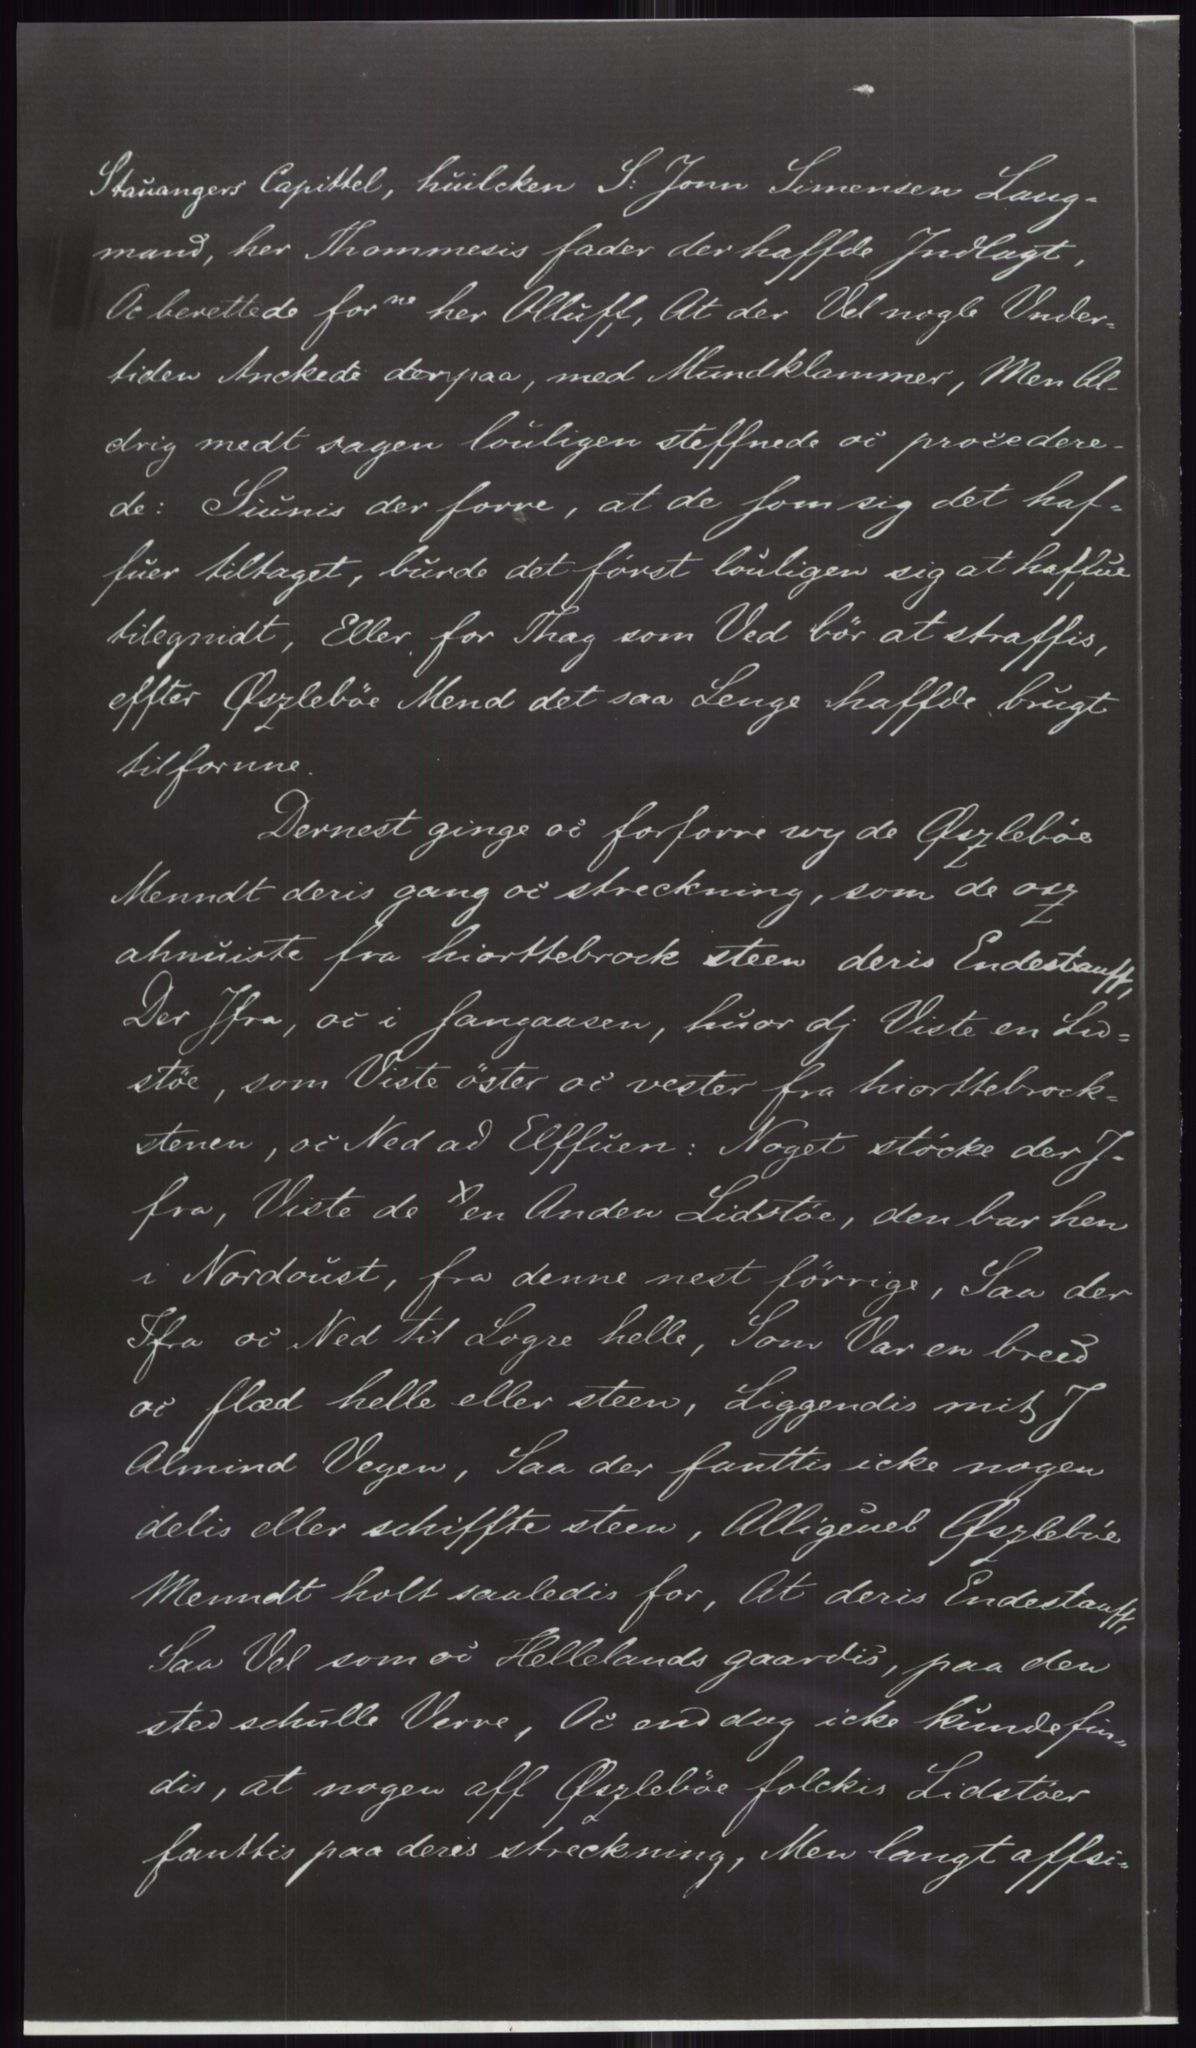 Stauangers Capittel, huilcken S: Jonn Simensen Laug=
mand, her Thommesis fader der haffde Indlagt,
Oc berettede for ne her Olluff, At der Vel nogle Vnder=
tiden Anckede derpaa, med Mundklammer, Men Al-
drig medt sagen louligen steffnede oc procedere-
de: Siunis der forre, at de som sig det haf=
fuer tiltaget, burde det först louligen sig at haffue
tilegnidt, Eller for Thag som Ved bör at straffis,
effter Øszleböe Mend det saa Lenge haffde brugt
tilfornne.
Dernest ginge oc forforre wy de Øszleböe
Menndt deris gang oc streckning, som de osz
ahnuiste fra hiorttebrock steen deris Endestauff,
Der Ifra, oc i Sangaasen, huor dj Viste en Lid=
stöe, som Viste öster oc vester fra hiorttebrock=
stenen, oc Ned ad Elffuen: Noget stöcke der I-
fra, Viste de x en Anden Lidstöe, den bar hen
i Nordoust, fra denne nest förrige, Saa der
Ifra oc Ned til Logre helle, Som Var en breed
oc flad helle eller steen, Liggendis mit J
Almind Veyen, Saa der fanttis icke nogen
delis eller schiffte steen, Alligeuel Øszleböe
Menndt holt saaledis for, At deris Endestauff,
Saa Vel som oc Hellelands gaardis, paa den
sted schulle Verre, Oc end dog icke kunde fin=
dis, at nogen aff Øszleböe folckis Lidstöer
fanttis paa deris streckning, Men langt affsi=